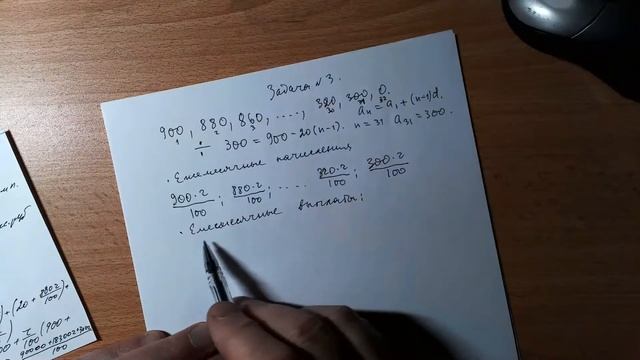 Задача №3.
900, 880, 860, ....., 320, 300, 0.
1 2 3 30 31 32
300 = 900 - 20(n-1). n = 31 aₙ = a₁ + (n-1)d.
a₃₁ = 300.
· Ежемесячные начисления
900·r/100 ; 880·r/100 ; .... 320·r/100 ; 300·r/100
· Ежемесячные выплаты:
+ (20 + 880r/100) +
r/100 (900 +